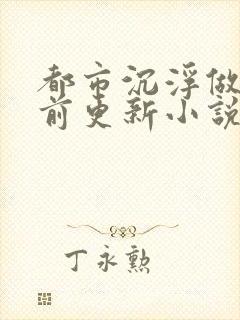 都市沉浮做
前更新小說
丁永勲